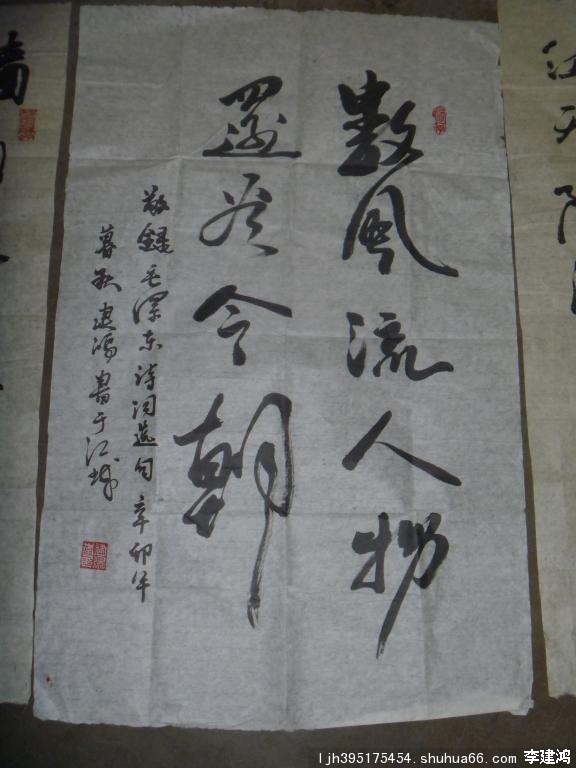 江天
數風流人物
還看今朝
敬錄毛澤东诗词选句辛卯年
暮秋建鸿書于江城
ljh395175454.shuhua66.com 李建鸿